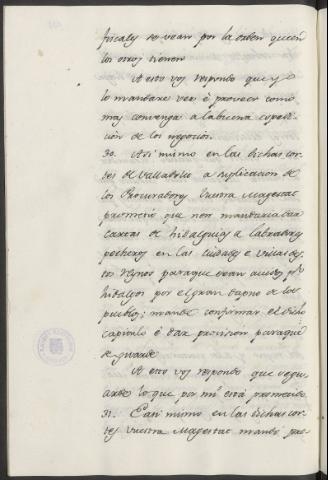 fiscales se vean por la orden que en
los otros tienen
A esto vos respondo que yo
lo mandare ver è proveer como
mas convenga à la buena expedi-
ción de los negocios.
30. Asi mismo en las dichas cor-
tes de Valladolid a suplicacion de
los Procuradores Vuestra Magestat
prometió que non mandaria dar
cartas de hidalguias a labradores
pecheros en las ciudades e villas des-
tos reynos para que sean avidos por
hidalgos por el gran dapno de los
pueblos; mande confirmar el dicho
capitulo è dar provision para que
se guarde
A esto vos respondo que se gu-
arde lo que por mi está prometido
31. E asi mismo en las dichas cor-
tes Vuestra Magestat mandó pro-